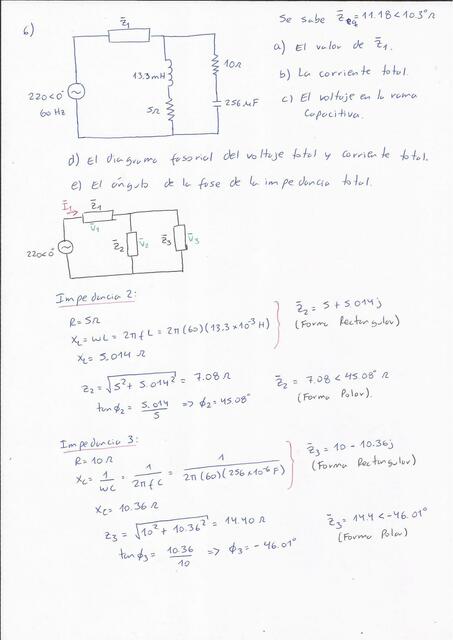 6)
Z̄1
13.3mH
5Ω
10Ω
256 μF
220<0°
60 Hz
Se sabe Z̄eq=11.18<10.3° Ω
a) El valor de Z̄1.
b) La corriente total.
c) El voltaje en la rama
capacitiva.
d) El diagrama fasorial del voltaje total y corriente total.
e) El ángulo de la fase de la impedancia total.
Ī1
Z̄1
V̄1
220<0°
Z̄2
V̄2
Z̄3
V̄3
Impedancia 2:
R = 5Ω
XL = WL = 2πfL = 2π(60)(13.3 x10⁻³ H)
XL = 5.014 Ω
Z̄2 = 5 + 5.014j
(Forma Rectangular)
Z2 = √5² + 5.014² = 7.08 Ω
tanϕ2 = 5.014/5 => ϕ2 = 45.08°
Z̄2 = 7.08 < 45.08°
(Forma Polar).
Impedancia 3:
R = 10 Ω
XC = 1/WC = 1/2πfC = 1/2π(60)(256x10⁻⁶ F)
XC = 10.36 Ω
Z̄3 = 10 - 10.36j
(Forma Rectangular)
Z3 = √10² + 10.36² = 14.40 Ω
tanϕ3 = 10.36/10 => ϕ3 = -46.01°
Z̄3 = 14.4 <-46.01°
(Forma Polar)